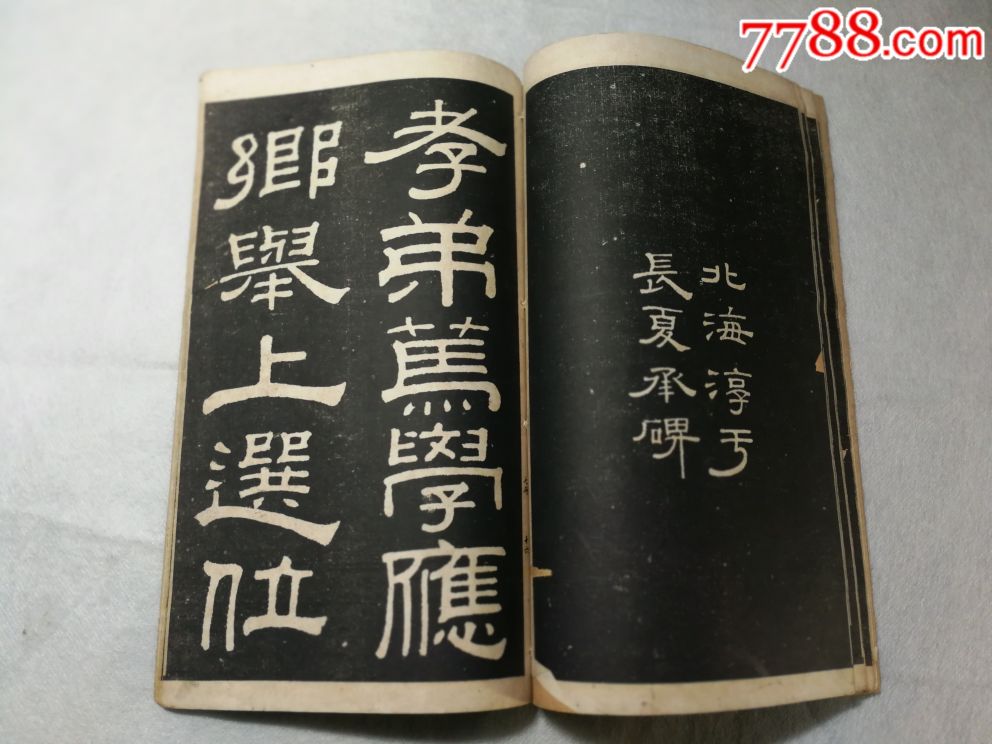 北海淳于
長夏承碑
孝弟篤學應
鄉舉上選位
7788.com